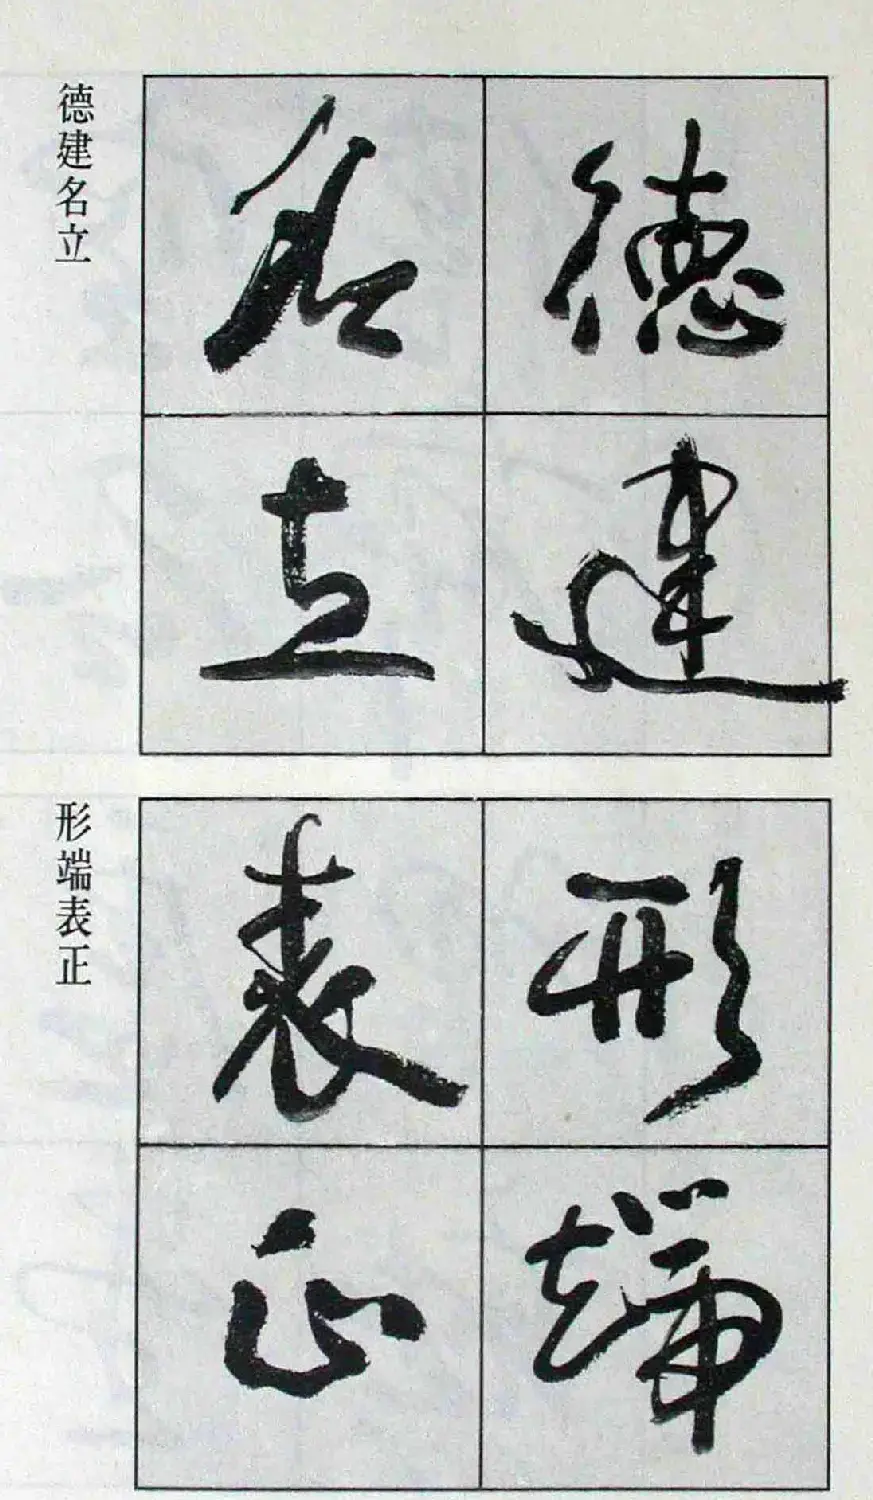 德建
名立
德建名立
形端
表正
形端表正